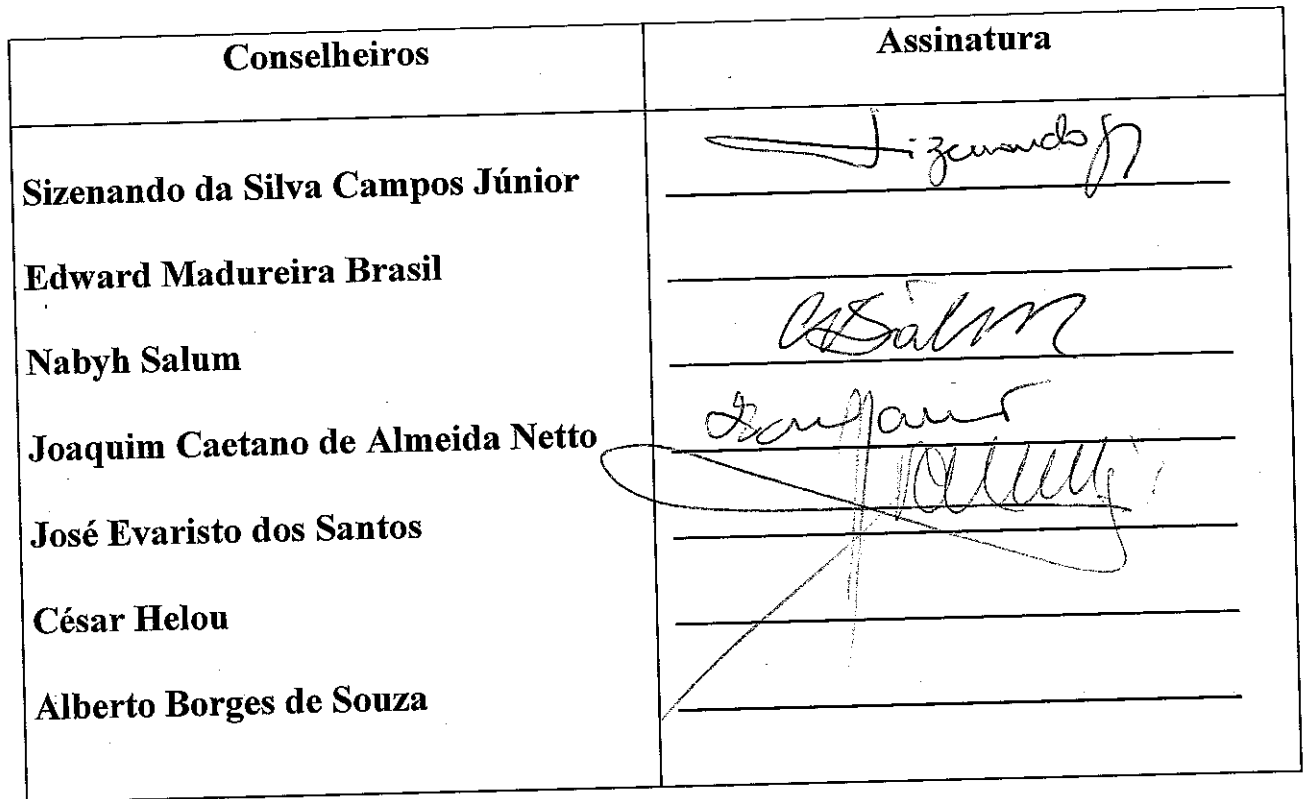 Conselheiros Assinatura
Sizenando da Silva Campos Júnior Sizenando Jr
Edward Madureira Brasil
Nabyh Salum Salum
Joaquim Caetano de Almeida Netto
José Evaristo dos Santos
César Helou
Alberto Borges de Souza